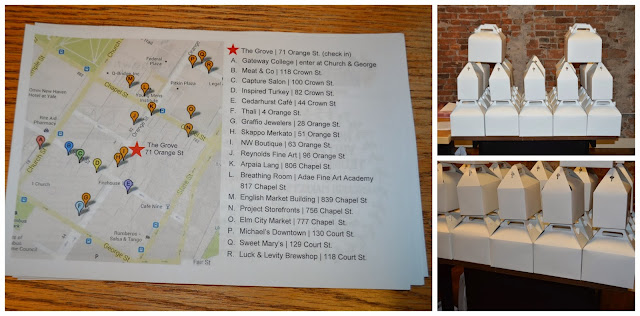 The Grove | 71 Orange St. (check in)
A. Gateway College | enter at Church & George
B. Meat & Co | 118 Crown St.
C. Capture Salon | 100 Crown St.
D. Inspired Turkey | 82 Crown St.
E. Cedarhurst Café | 44 Crown St.
F. Thali | 4 Orange St.
G. Graffio Jewelers | 28 Orange St.
H. Skappo Merkato | 51 Orange St.
I. NW Boutique | 63 Orange St.
J. Reynolds Fine Art | 96 Orange St.
K. Arpaia Lang | 806 Chapel St.
L. Breathing Room | Adae Fine Art Academy
817 Chapel St.
M. English Market Building | 839 Chapel St
N. Project Storefronts | 756 Chapel St.
O. Elm City Market | 777 Chapel St.
P. Michael's Downtown | 130 Court St.
Q. Sweet Mary's | 129 Court St.
R. Luck & Levity Brewshop | 118 Court St.
Federal
Plaza
Chapel St
Omni New Haven
Hotel at Yale
Fire Ant
Pharmacies
Church St
The Grove
71 Orange St
Firehouse
Cafe Nine
George St
Salsa & Tango